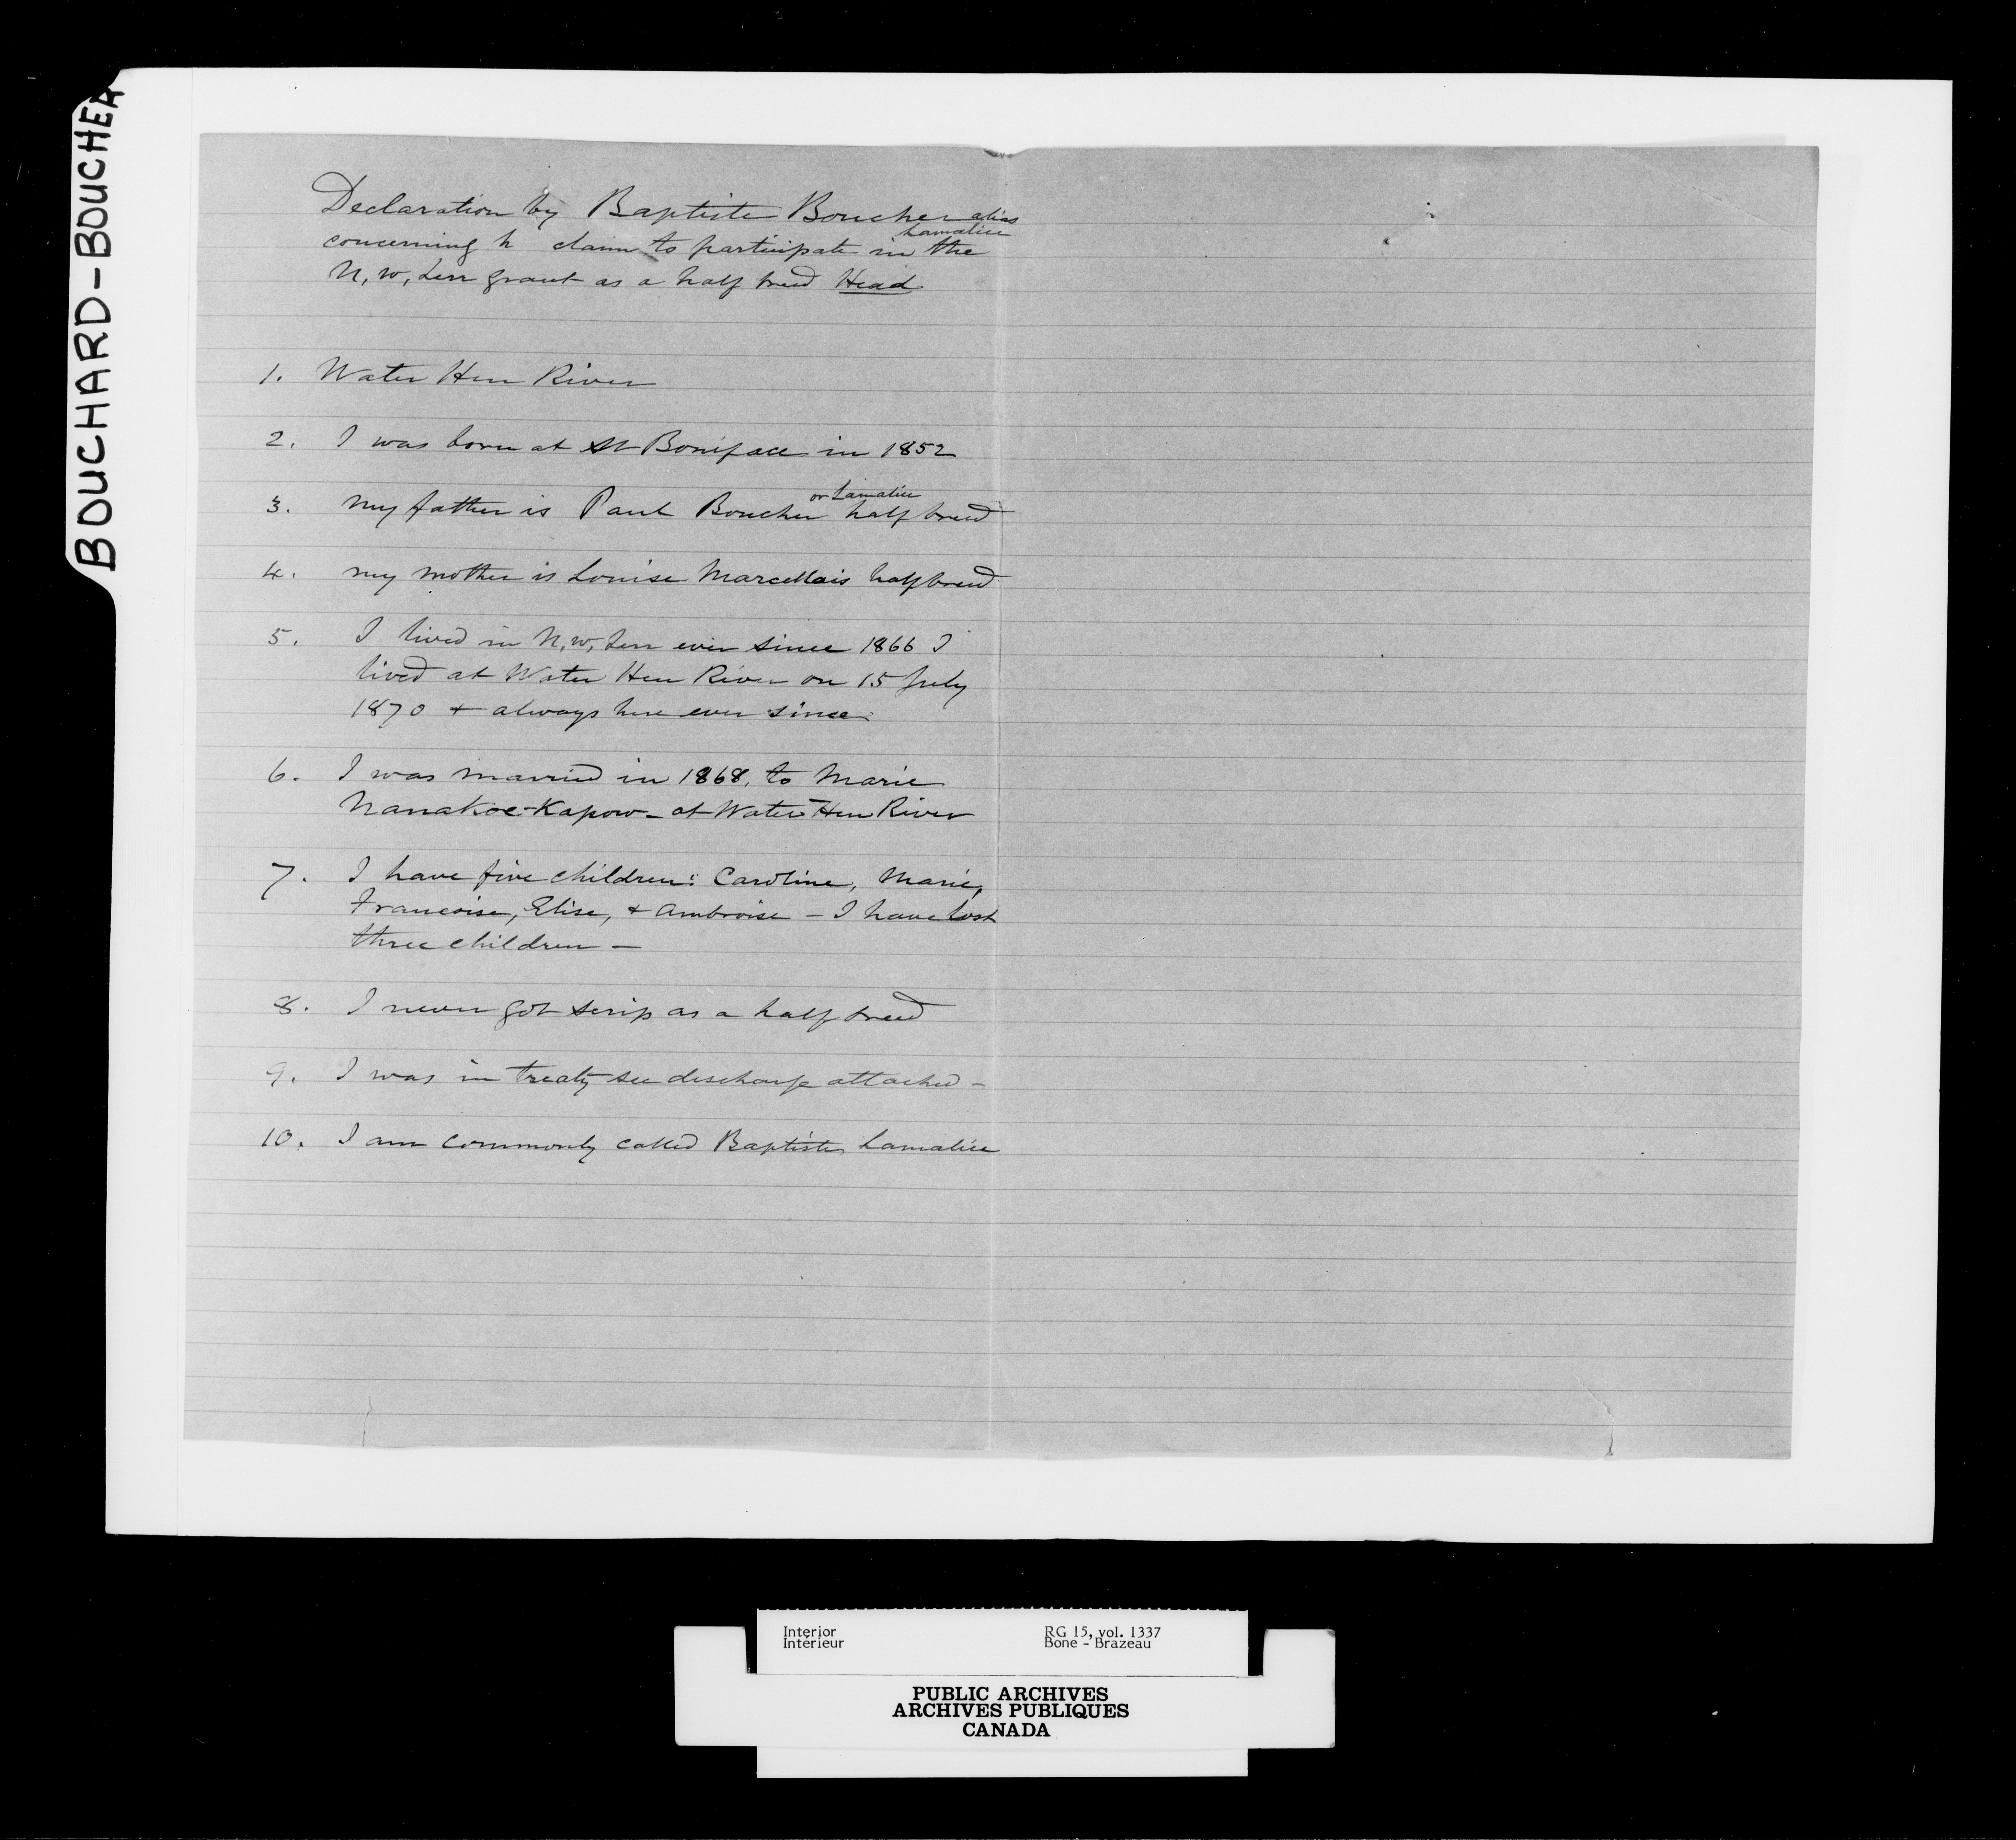 BOUCHARD-BOUCHER
Declaration by Baptiste Boucher alias
Lamalice
concerning h claim to participate in the
N, W, Terr grant as a half breed Head
1. Water Hen River
2. I was born at St Boniface in 1852
or Lamalice
3. My father is Paul Boucher half breed
4. my mother is Louise Marcellais half breed
5. I lived in N, W, Terr ever since 1866 I
lived at Water Hen River on 15 July
1870 + always here ever since.
6. I was married in 1868, to Marie
Nanakoe-Kapow - at Water Hen River
7. I have five children: Caroline, Marie,
Francoise, Elise, + Ambroise - I have lost
three children -
8. I never got scrip as a half breed
9. I was in treaty see discharge attached -
10. I am commonly called Baptiste Lamalice
Interior
Intérieur
RG 15, vol. 1337
Bone - Brazeau
PUBLIC ARCHIVES
ARCHIVES PUBLIQUES
CANADA